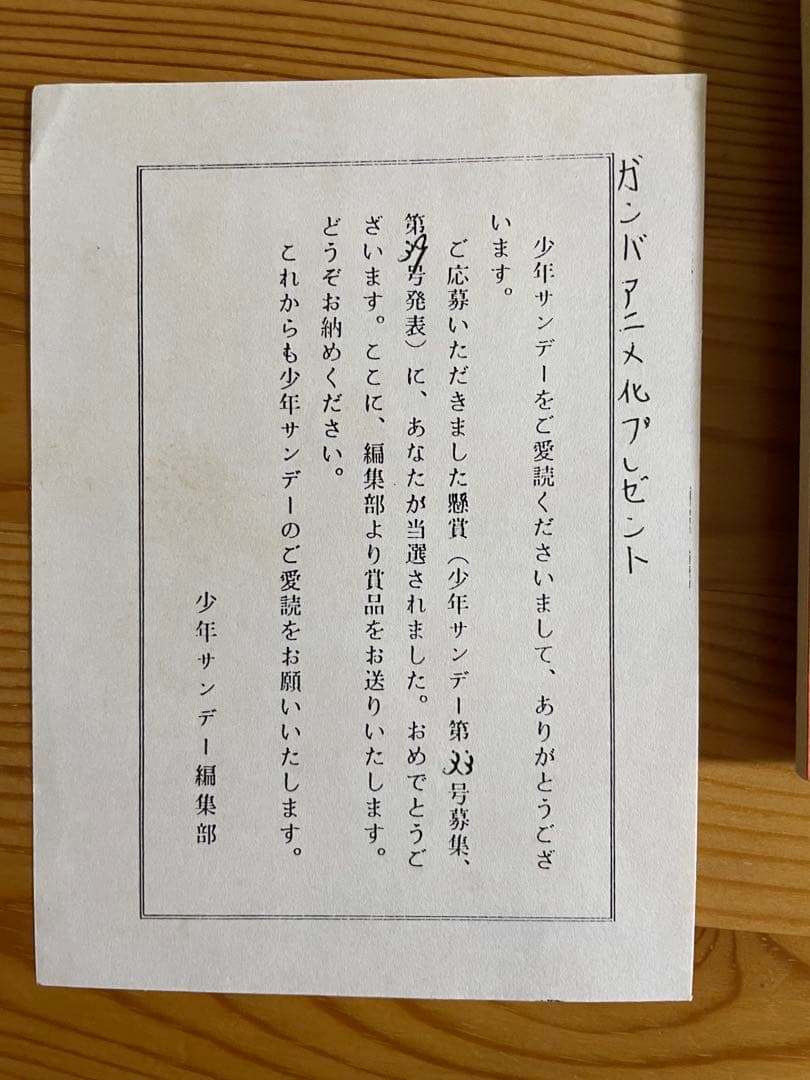 ガンバアニメ化プレゼント
少年サンデーをご愛読くださいまして、ありがとうござ
います。
ご応募いただきました懸賞（少年サンデー第33号募集、
第39号発表）に、あなたが当選されました。おめでとうご
ざいます。ここに、編集部より賞品をお送りいたします。
どうぞお納めください。
これからも少年サンデーのご愛読をお願いいたします。
少年サンデー編集部